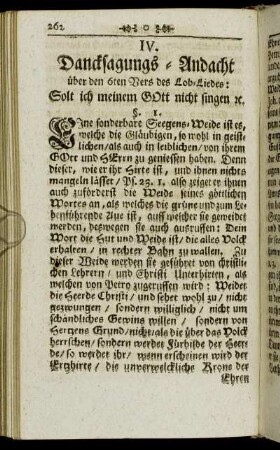 262
IV.
Dancksagungs-Andacht
über den 6ten Vers des Lob-Liedes:
Solt ich meinem GOtt nicht singen ꝛc.
§. 1.
Eine sonderbare Seegens-Weide ist es,
welche die Gläubigen, so wohl in geist-
lichen/ als auch in leiblichen/ von ihrem
GOtt und HErrn zu geniessen haben. Denn
dieser, wie er ihr Hirte ist, und ihnen nichts
mangeln lässet/ Ps. 23. 1. also zeiget er ihnen
auch zuförderst die Weide seines göttlichen
Wortes an, als welches die grüne und zum Le-
ben führende Aue ist, auff welcher sie geweidet
werden, deßwegen sie auch ausruffen: Dein
Wort die Hut und Weide ist/ die alles Volck
erhalten/ in rechter Bahn zu wallen. Zu
dieser Weide werden sie geführet von Christli-
chen Lehrern/ und Christi Unterhirten, als
welchen von Petro zugeruffen wird: Weidet
die Heerde Christi/ und sehet wohl zu/ nicht
gezwungen/ sondern williglich/ nicht um
schändliches Gewins willen/ sondern von
Hertzens Grund/ nicht/ als die über das Volck
herrschen/ sondern werdet Fürbilde der Heer-
de/ so werdet ihr/ wenn erscheinen wird der
Ertzhirte/ die unverwelckliche Krone der
Ehren